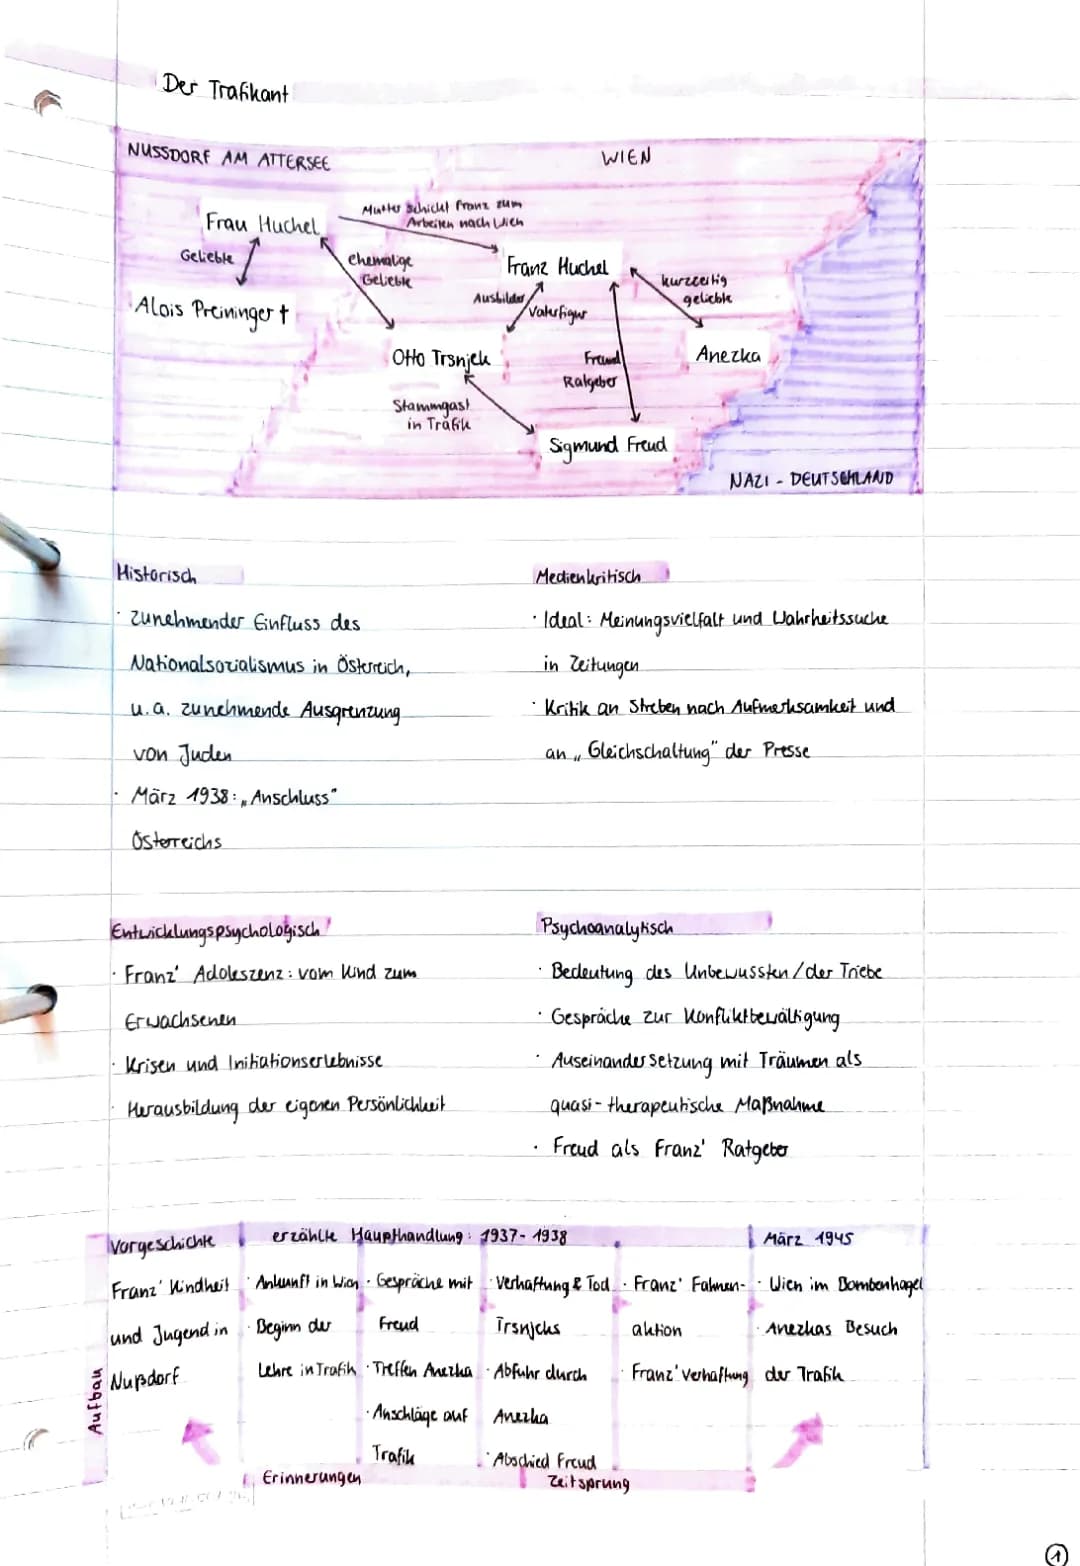 Der Trafikant
NUSSDORF AM ATTERSEE
WIEN
Mutter schickt Franz zum
Arbeiten nach Wien
Frau Huchel
Geliebte
ehemalige
Geliebte
Franz Huchel
kurzzeitig
geliebte
Ausbilder
Vaterfigur
Alois Preininger †
Otto Trsnjek
Freund
Ratgeber
Anezka
Stammgast
in Trafik
Sigmund Freud
NAZI - DEUTSCHLAND
Historisch
· zunehmender Einfluss des
Nationalsozialismus in Österreich,
u.a. zunehmende Ausgrenzung
von Juden
· März 1938: „Anschluss"
Österreichs
Medienkritisch
· Ideal: Meinungsvielfalt und Wahrheitssuche
in Zeitungen
· Kritik an Streben nach Aufmerksamkeit und
an „Gleichschaltung" der Presse
Entwicklungspsychologisch
· Franz' Adoleszenz: vom Kind zum
Erwachsenen
· Krisen und Initiationserlebnisse
· Herausbildung der eigenen Persönlichkeit
Psychoanalytisch
· Bedeutung des Unbewussten / der Triebe
· Gespräche zur Konfliktbewältigung
· Auseinandersetzung mit Träumen als
quasi-therapeutische Maßnahme
· Freud als Franz' Ratgeber
Aufbau
Vorgeschichte
Franz' Kindheit
und Jugend in
Nußdorf
erzählte Haupthandlung: 1937-1938
· Ankunft in Wien
· Beginn der
Lehre in Trafik
· Gespräche mit
Freud
· Treffen Anezka
· Anschläge auf
Trafik
· Verhaftung & Tod
Trsnjeks
· Abfuhr durch
Anezka
· Abschied Freud
· Franz' Fahnen-
aktion
· Franz' Verhaftung
März 1945
· Wien im Bombenhagel
· Anezkas Besuch
der Trafik
Erinnerungen
Zeitsprung
1